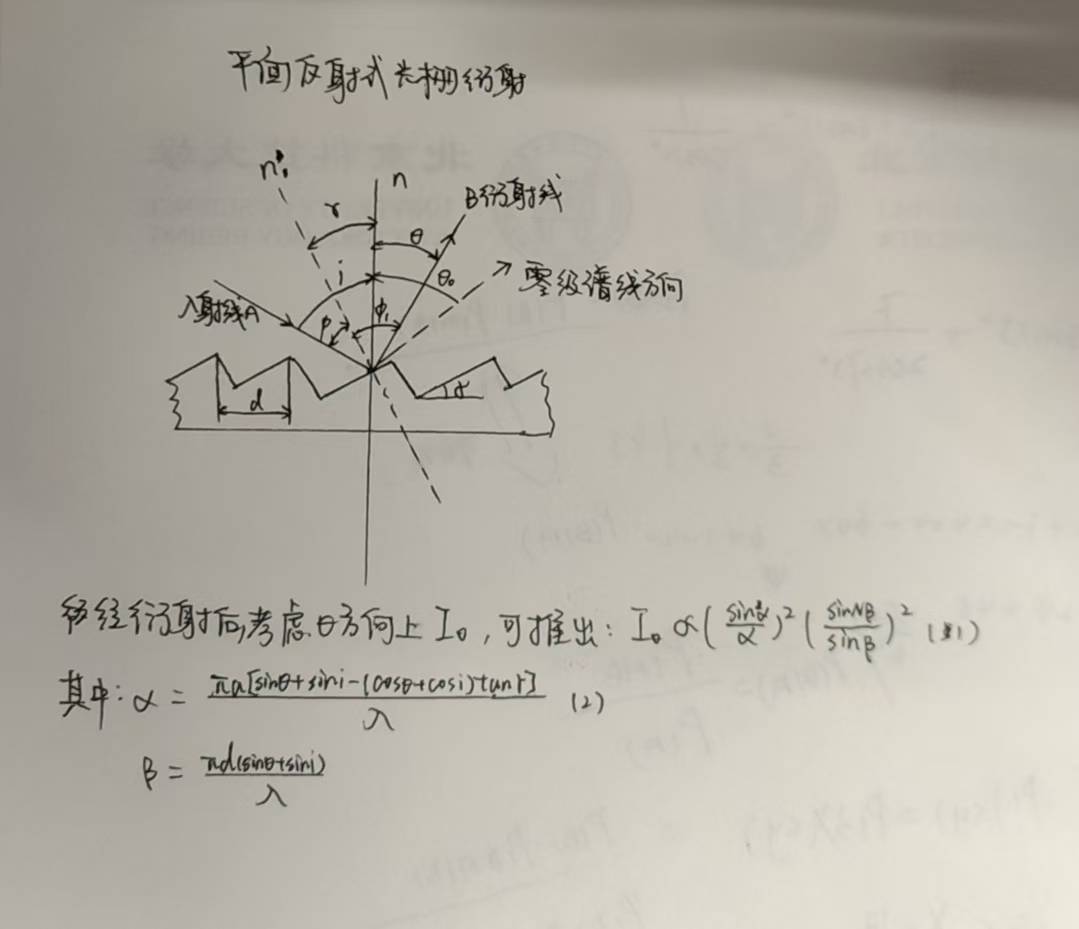 平面反射式光栅衍射
n'₁
n
B衍射线
γ
θ
i
θ₀
零级谱线方向
入射线A
φ
φ₁
d
γ
经衍射后,考虑θ方向上 I₀,可推出: I₀ ∝ (sinα/α)² (sinNβ/sinβ)² (1)
其中: α = πa[sinθ+sini-(cosθ+cosi)tanr]/λ (2)
β = πd(sinθ+sini)/λ